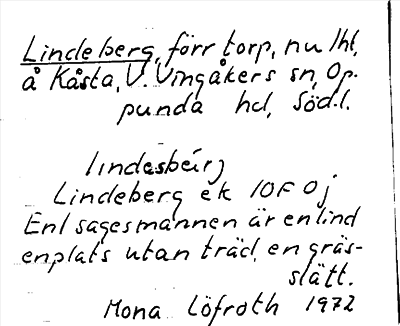 Lindeberg, förr torp, nu lht,
å Kåsta, V. Vingåkers sn, Op.
punda hd, Söd.l.
lindesbärj
Lindeberg ek 10F 0j
Enl sagesmannen är en lind
enplats utan träd, en gräs-
slätt.
Mona Löfroth 1972